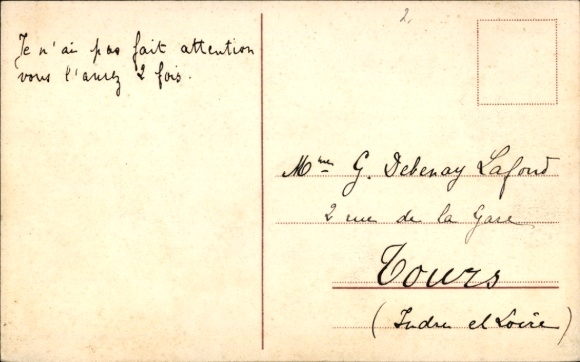 2.
Je n'ai pas fait attention
vous l'aurez 2 fois.
Mme G. Debenay Lafond
2 rue de la Gare
Tours
(Indre et Loire)